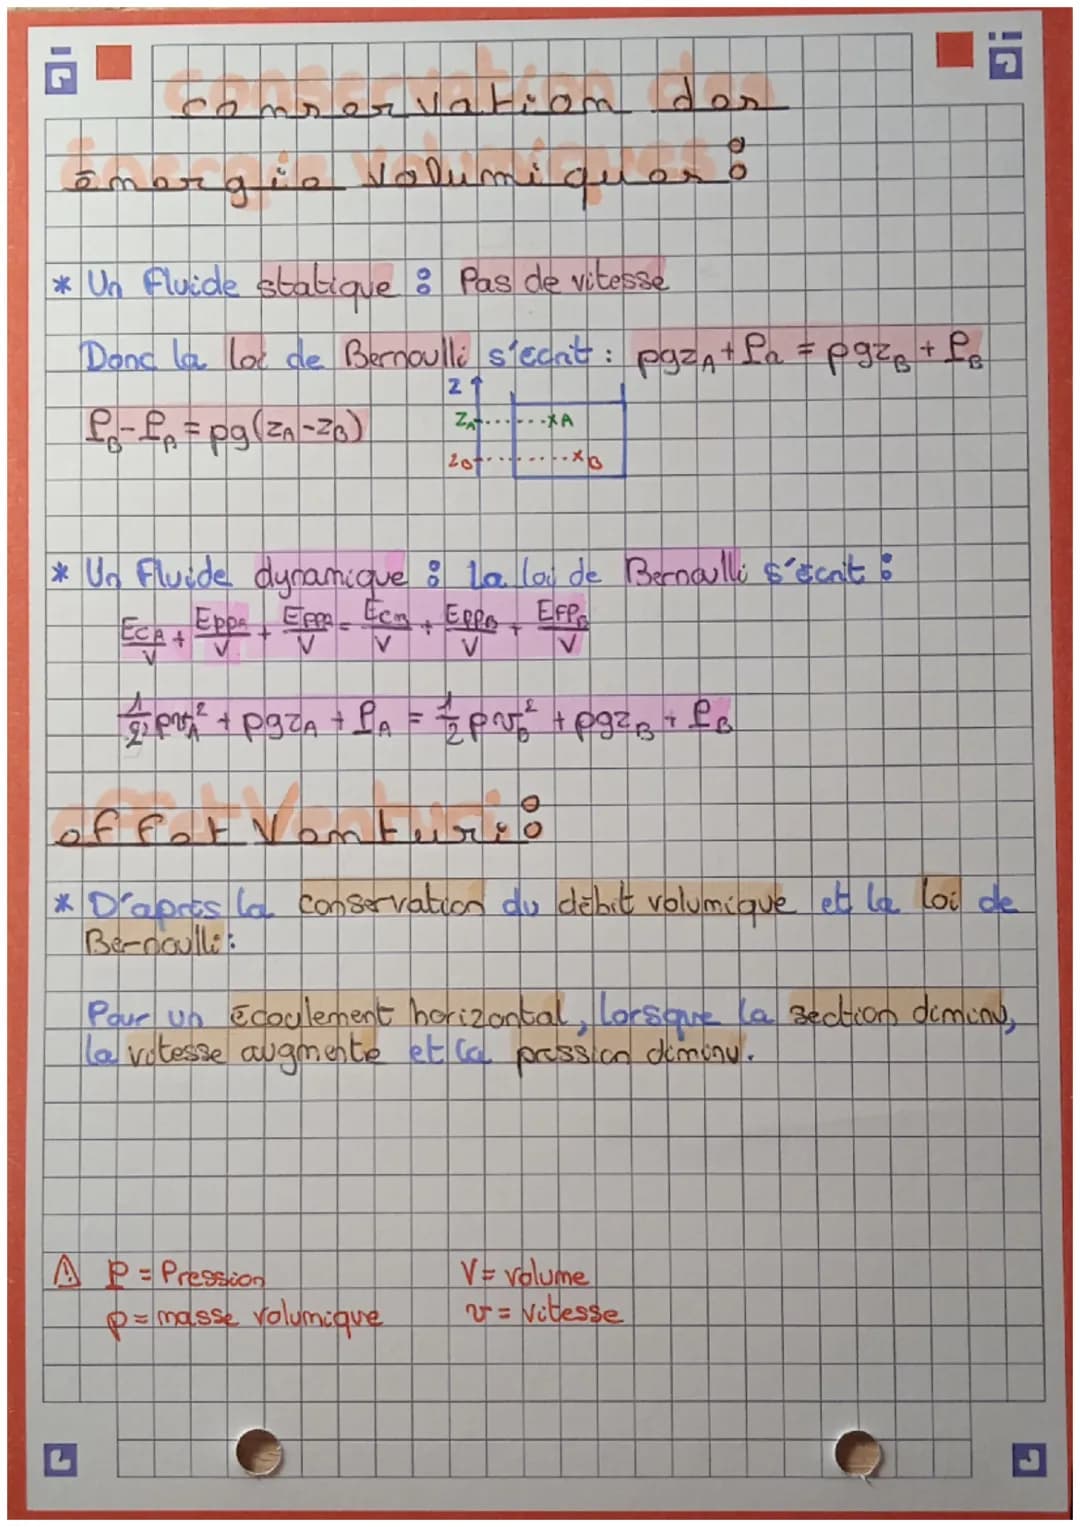 conservation des
énergie volumiques :
* Un fluide statique : Pas de vitesse
Donc la loi de Bernoulli s'ecrit : ρgz_A + P_A = ρgz_B + P_B
P_B - P_A = ρg(z_A - z_B)
z
z_A xA
z_B xB
* Un fluide dynamique : la loi de Bernoulli s'écrit :
Ec_A/V + Epp_A/V + Efp_A/V = Ec_B/V + Epp_B/V + Efp_B/V
1/2 ρv_A² + ρgz_A + P_A = 1/2 ρv_B² + ρgz_B + P_B
effet Venturi :
* D'après la conservation du débit volumique et la loi de
Bernoulli :
Pour un écoulement horizontal, lorsque la section diminu,
la vitesse augmente et la pression diminu.
⚠ P = Pression V = volume
ρ = masse volumique v = vitesse